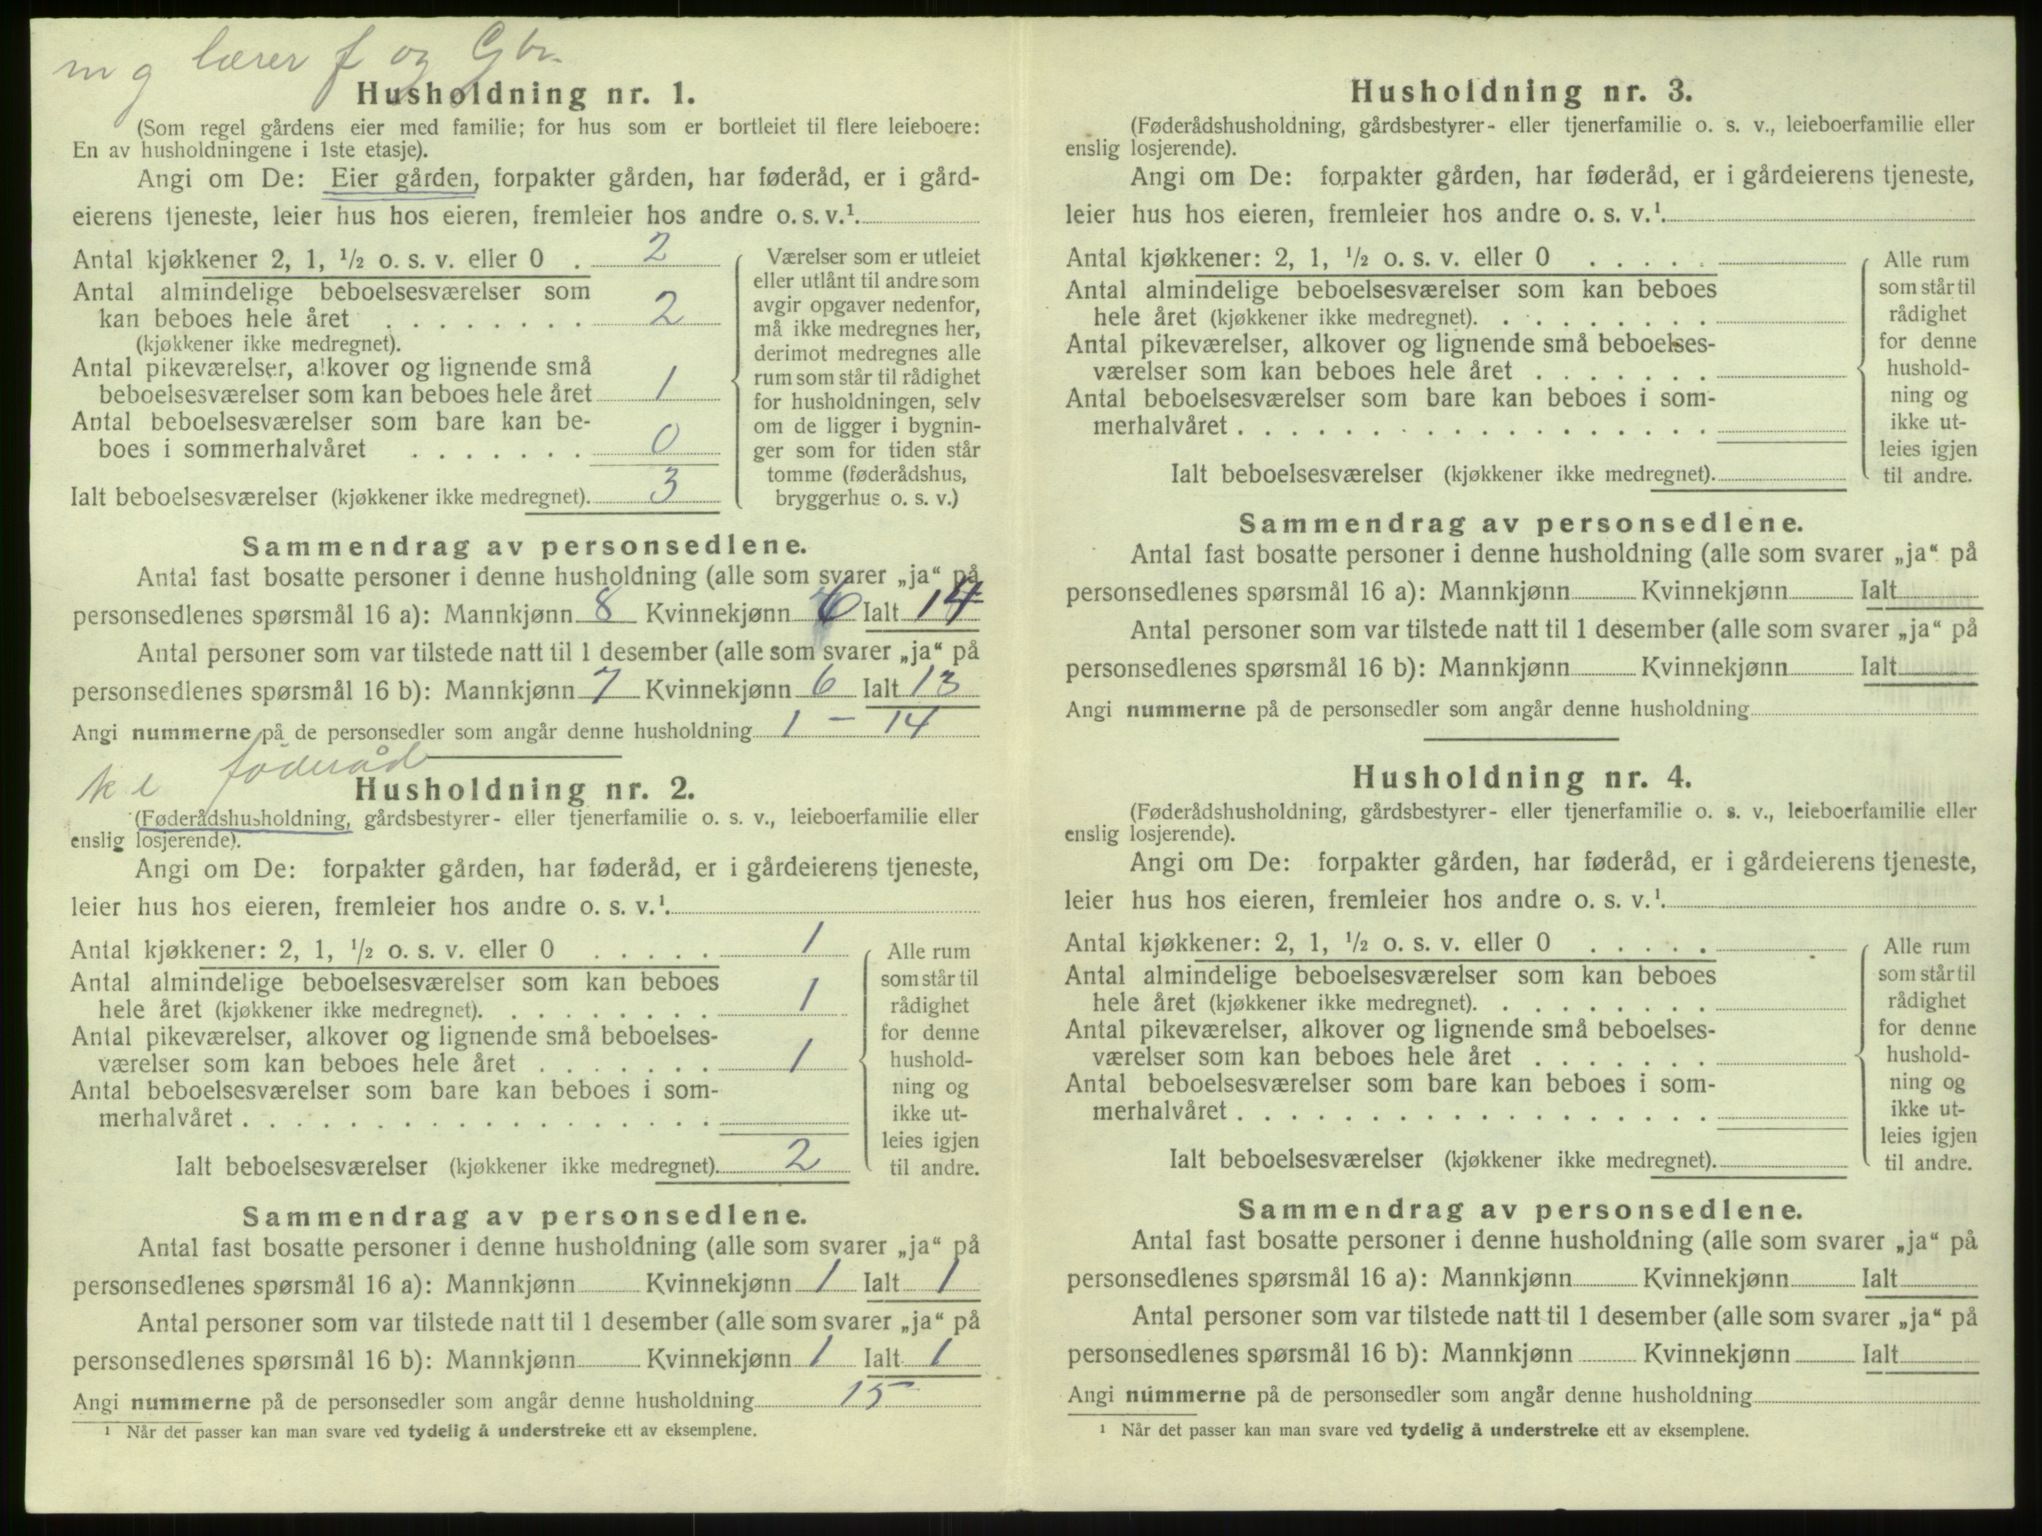 m g lærer f og Gbr.
Husholdning nr. 1.
(Som regel gårdens eier med familie; for hus som er bortleiet til flere leieboere:
En av husholdningene i 1ste etasje).
Angi om De: Eier gården, forpakter gården, har føderåd, er i gård-
eierens tjeneste, leier hus hos eieren, fremleier hos andre o. s. v.¹
Antal kjøkkener 2, 1, ½ o. s. v. eller 0 . 2
Antal almindelige beboelsesværelser som
kan beboes hele året . . . . . . . . 2
(kjøkkener ikke medregnet).
Antal pikeværelser, alkover og lignende små
beboelsesværelser som kan beboes hele året 1
Antal beboelsesværelser som bare kan be-
boes i sommerhalvåret . . . . . . . 0
Ialt beboelsesværelser (kjøkkener ikke medregnet). 3
Værelser som er utleiet
eller utlånt til andre som
avgir opgaver nedenfor,
må ikke medregnes her,
derimot medregnes alle
rum som står til rådighet
for husholdningen, selv
om de ligger i bygnin-
ger som for tiden står
tomme (føderådshus,
bryggerhus o. s. v.)
Sammendrag av personsedlene.
Antal fast bosatte personer i denne husholdning (alle som svarer „ja“ på
personsedlenes spørsmål 16 a): Mannkjønn 8 Kvinnekjønn 6 Ialt 14
Antal personer som var tilstede natt til 1 desember (alle som svarer „ja“ på
personsedlenes spørsmål 16 b): Mannkjønn 7 Kvinnekjønn 6 Ialt 13
Angi nummerne på de personsedler som angår denne husholdning 1 — 14
k e føderåd
Husholdning nr. 2.
(Føderådshusholdning, gårdsbestyrer- eller tjenerfamilie o. s. v., leieboerfamilie eller
enslig losjerende).
Angi om De: forpakter gården, har føderåd, er i gårdeierens tjeneste,
leier hus hos eieren, fremleier hos andre o. s. v.¹
Antal kjøkkener: 2, 1, ½ o. s. v. eller 0 . . . . . 1
Antal almindelige beboelsesværelser som kan beboes
hele året (kjøkkener ikke medregnet). . . . . . . . . 1
Antal pikeværelser, alkover og lignende små beboelses-
værelser som kan beboes hele året . . . . . . . 1
Antal beboelsesværelser som bare kan beboes i som-
merhalvåret . . . . . . . . . . . . . . . . . .
Ialt beboelsesværelser (kjøkkener ikke medregnet). 2
Alle rum
som står til
rådighet
for denne
hushold-
ning og
ikke ut-
leies igjen
til andre.
Sammendrag av personsedlene.
Antal fast bosatte personer i denne husholdning (alle som svarer „ja“ på
personsedlenes spørsmål 16 a): Mannkjønn Kvinnekjønn 1 Ialt 1
Antal personer som var tilstede natt til 1 desember (alle som svarer „ja“ på
personsedlenes spørsmål 16 b): Mannkjønn Kvinnekjønn 1 Ialt 1
Angi nummerne på de personsedler som angår denne husholdning 15
¹ Når det passer kan man svare ved tydelig å understreke ett av eksemplene.
Husholdning nr. 3.
(Føderådshusholdning, gårdsbestyrer- eller tjenerfamilie o. s. v., leieboerfamilie eller
enslig losjerende).
Angi om De: forpakter gården, har føderåd, er i gårdeierens tjeneste,
leier hus hos eieren, fremleier hos andre o. s. v.¹
Antal kjøkkener: 2, 1, ½ o. s. v. eller 0 . . . . .
Antal almindelige beboelsesværelser som kan beboes
hele året (kjøkkener ikke medregnet). . . . . . . . .
Antal pikeværelser, alkover og lignende små beboelses-
værelser som kan beboes hele året . . . . . . .
Antal beboelsesværelser som bare kan beboes i som-
merhalvåret . . . . . . . . . . . . . . . . . .
Ialt beboelsesværelser (kjøkkener ikke medregnet).
Alle rum
som står til
rådighet
for denne
hushold-
ning og
ikke ut-
leies igjen
til andre.
Sammendrag av personsedlene.
Antal fast bosatte personer i denne husholdning (alle som svarer „ja“ på
personsedlenes spørsmål 16 a): Mannkjønn Kvinnekjønn Ialt
Antal personer som var tilstede natt til 1 desember (alle som svarer „ja“ på
personsedlenes spørsmål 16 b): Mannkjønn Kvinnekjønn Ialt
Angi nummerne på de personsedler som angår denne husholdning
Husholdning nr. 4.
(Føderådshusholdning, gårdsbestyrer- eller tjenerfamilie o. s. v., leieboerfamilie eller
enslig losjerende).
Angi om De: forpakter gården, har føderåd, er i gårdeierens tjeneste,
leier hus hos eieren, fremleier hos andre o. s. v.¹
Antal kjøkkener: 2, 1, ½ o. s. v. eller 0 . . . . .
Antal almindelige beboelsesværelser som kan beboes
hele året (kjøkkener ikke medregnet). . . . . . . . .
Antal pikeværelser, alkover og lignende små beboelses-
værelser som kan beboes hele året . . . . . . .
Antal beboelsesværelser som bare kan beboes i som-
merhalvåret . . . . . . . . . . . . . . . . . .
Ialt beboelsesværelser (kjøkkener ikke medregnet).
Alle rum
som står til
rådighet
for denne
hushold-
ning og
ikke ut-
leies igjen
til andre.
Sammendrag av personsedlene.
Antal fast bosatte personer i denne husholdning (alle som svarer „ja“ på
personsedlenes spørsmål 16 a): Mannkjønn Kvinnekjønn Ialt
Antal personer som var tilstede natt til 1 desember (alle som svarer „ja“ på
personsedlenes spørsmål 16 b): Mannkjønn Kvinnekjønn Ialt
Angi nummerne på de personsedler som angår denne husholdning
¹ Når det passer kan man svare ved tydelig å understreke ett av eksemplene.